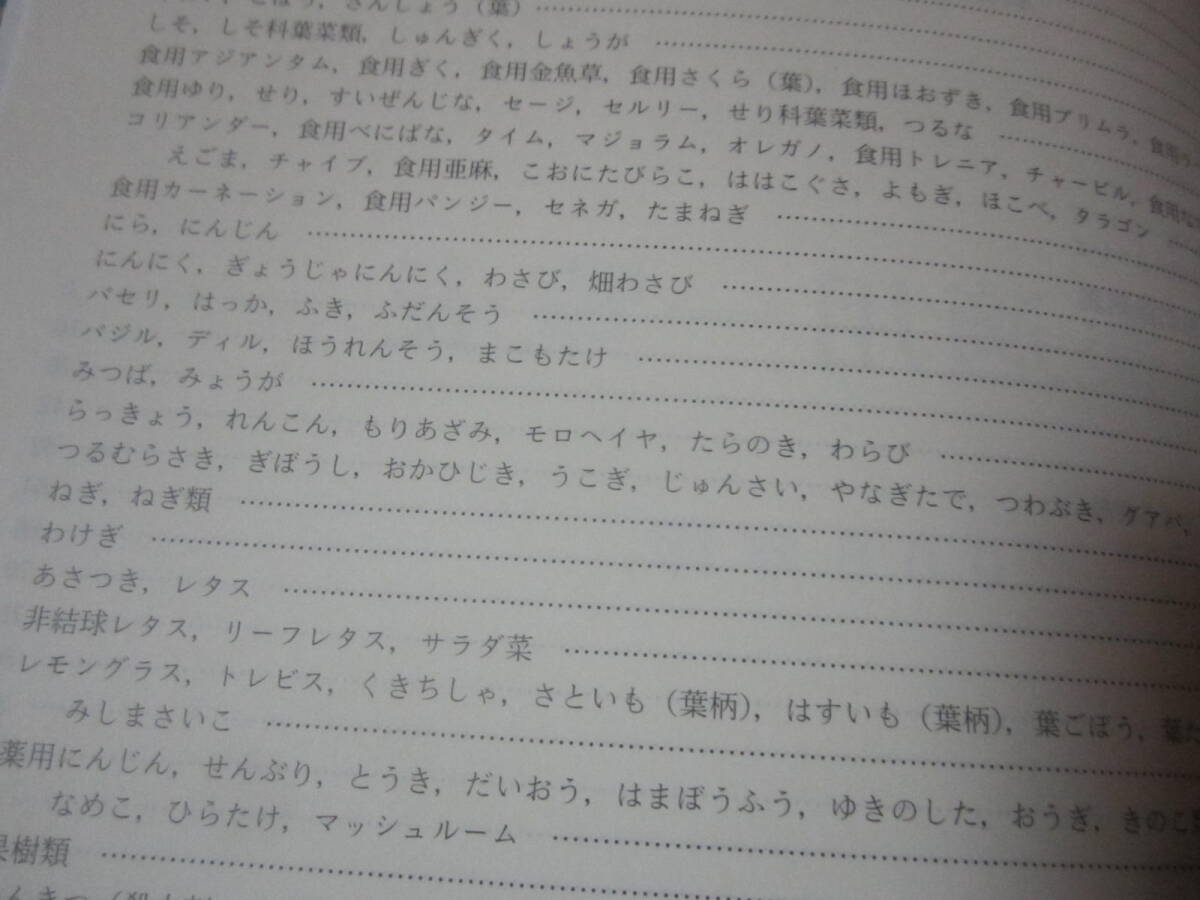 ごぼう，さんしょう（葉）……
しそ，しそ科葉菜類，しゅんぎく，しょうが ……
食用アジアンタム，食用ぎく，食用金魚草，食用さくら（葉），食用ほおずき，食用プリムラ，食用
食用ゆり，せり，すいぜんじな，セージ，セルリー，せり科葉菜類，つるな ……
コリアンダー，食用べにばな，タイム，マジョラム，オレガノ，食用トレニア，チャービル，食用な
えごま，チャイブ，食用亜麻，こおにたびらこ，ははこぐさ，よもぎ，ほこべ，タラゴン ……
食用カーネーション，食用パンジー，セネガ，たまねぎ ……
にら，にんじん ……
にんにく，ぎょうじゃにんにく，わさび，畑わさび ……
パセリ，はっか，ふき，ふだんそう ……
バジル，ディル，ほうれんそう，まこもたけ ……
みつば，みょうが ……
らっきょう，れんこん，もりあざみ，モロヘイヤ，たらのき，わらび ……
つるむらさき，ぎぼうし，おかひじき，うこぎ，じゅんさい，やなぎたで，つわぶき，グアバ，
ねぎ，ねぎ類 ……
わけぎ ……
あさつき，レタス ……
非結球レタス，リーフレタス，サラダ菜 ……
レモングラス，トレビス，くきちしゃ，さといも（葉柄），はすいも（葉柄），葉ごぼう，葉
みしまさいこ ……
薬用にんじん，せんぶり，とうき，だいおう，はまぼうふう，ゆきのした，おうぎ，きのこ類
なめこ，ひらたけ，マッシュルーム ……
果樹類 ……